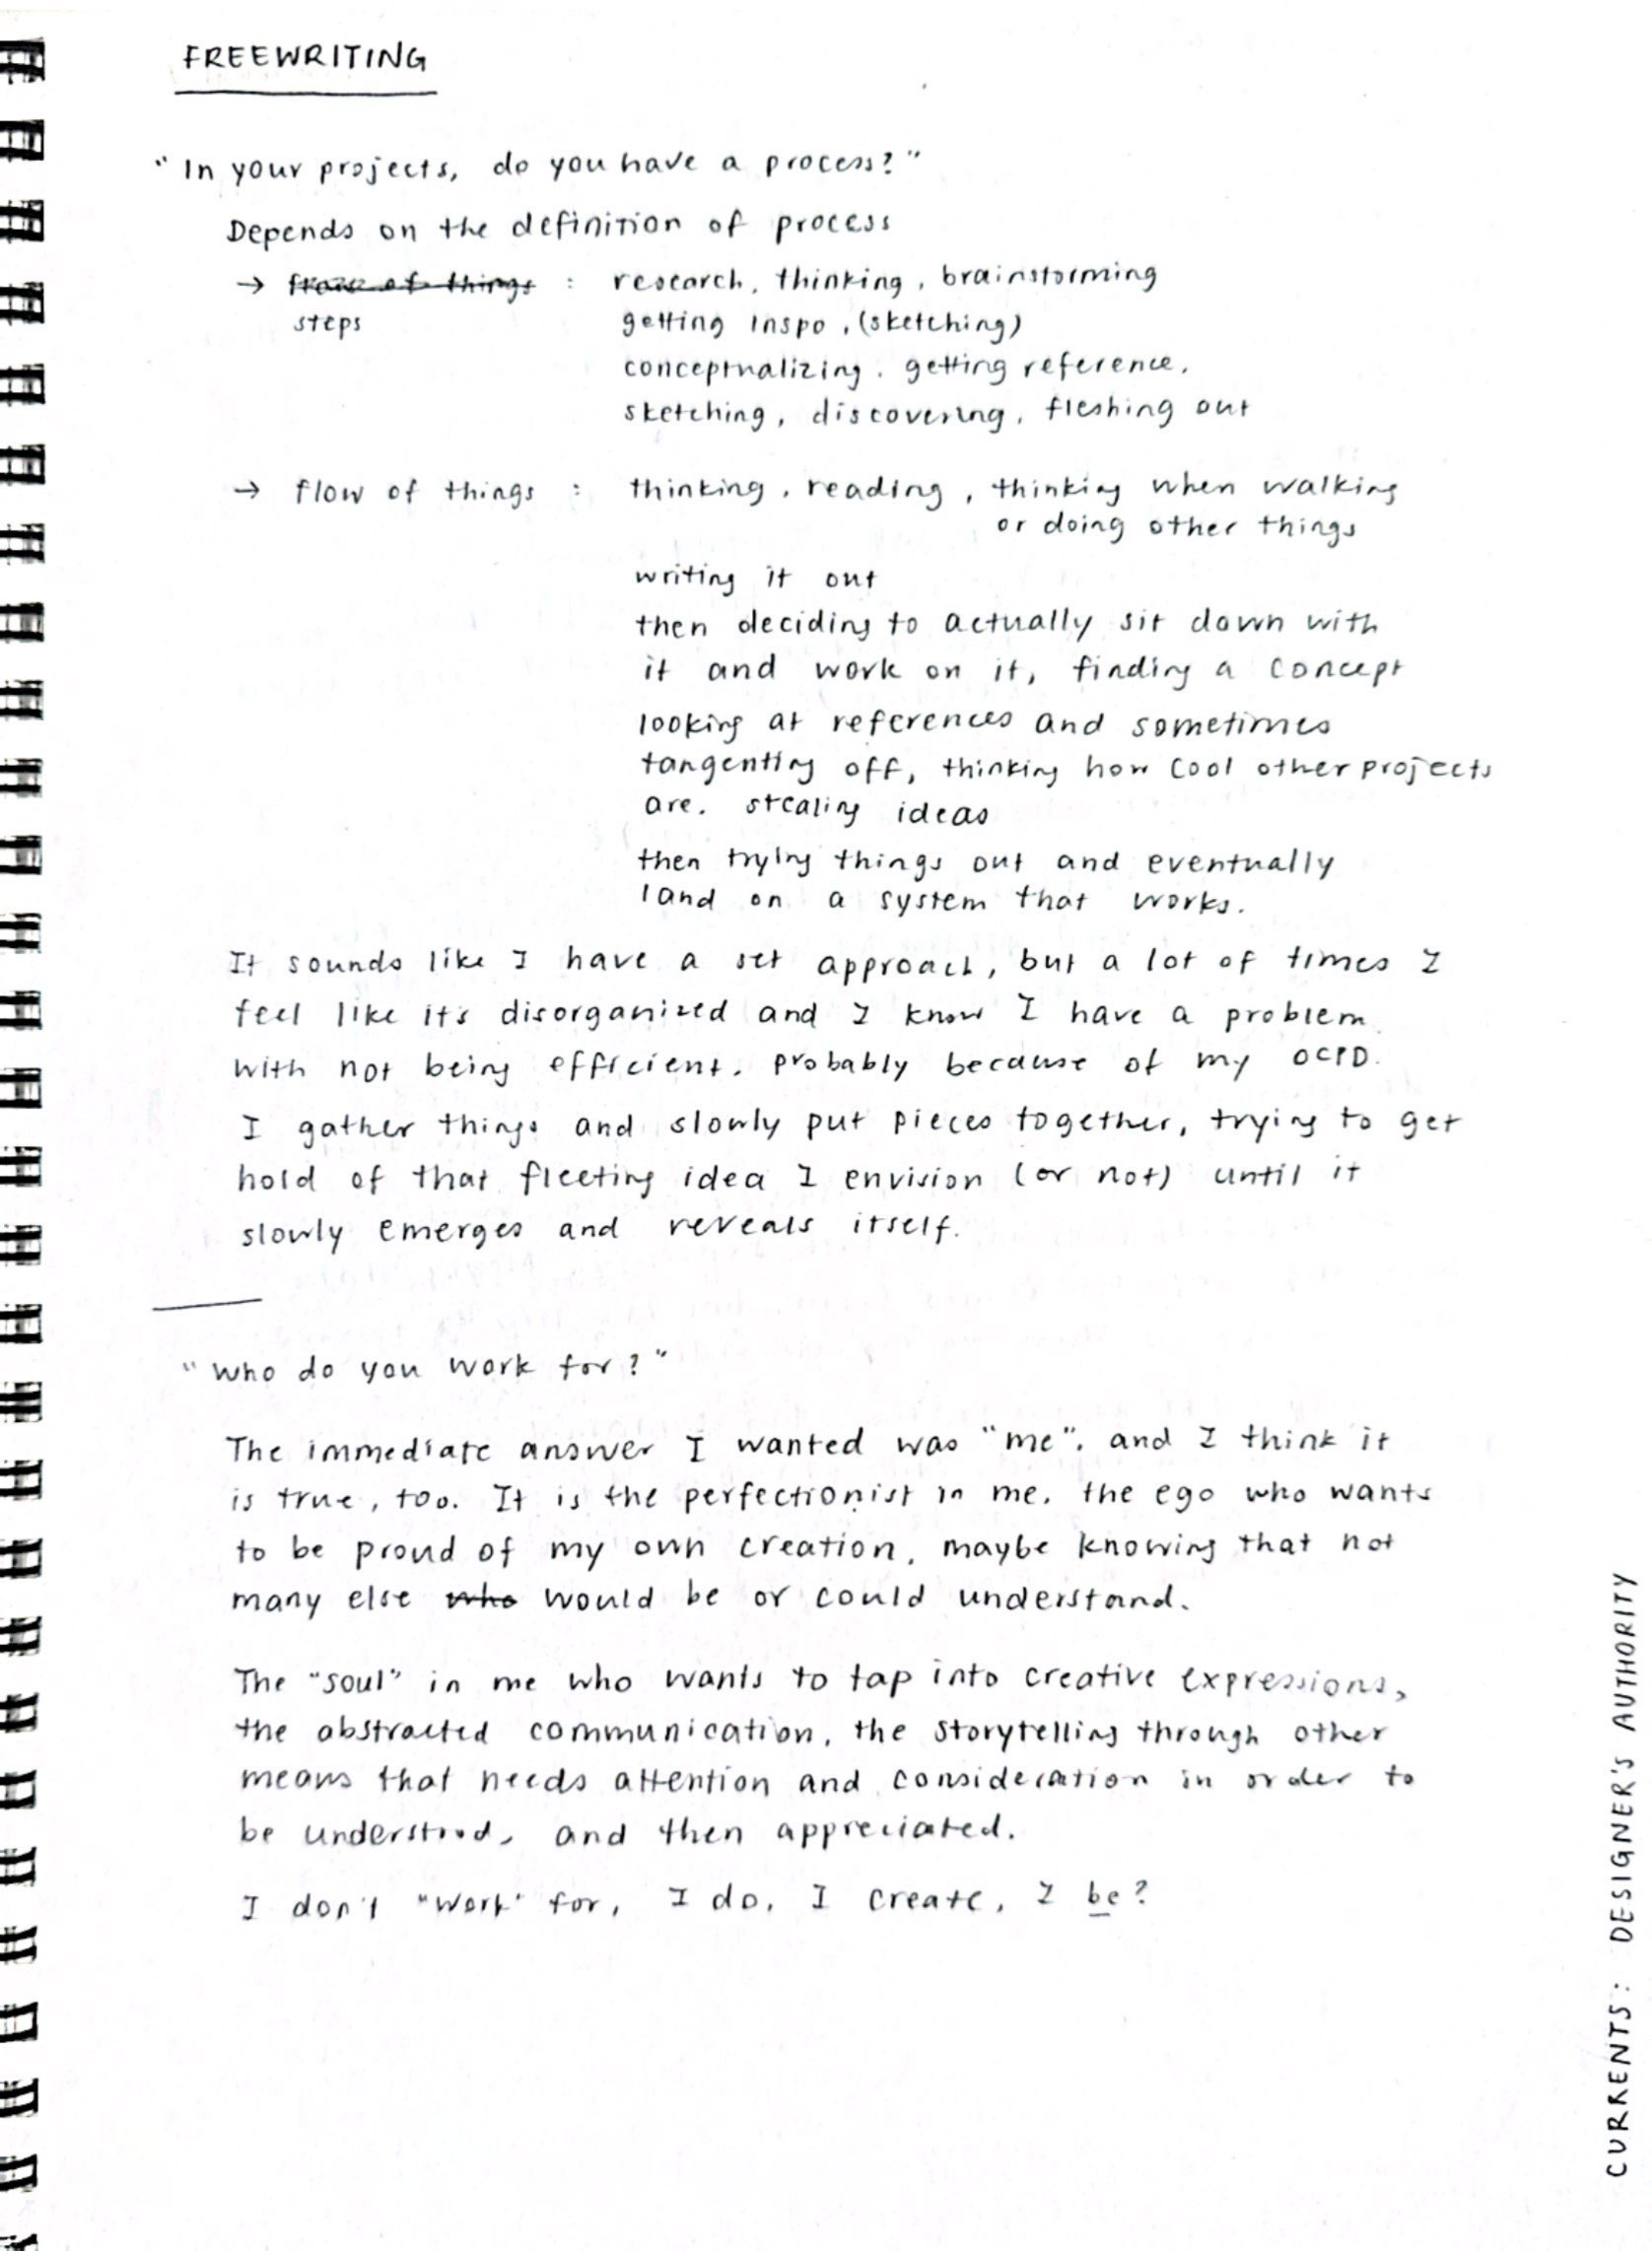 FREEWRITING
"In your projects, do you have a process?"
Depends on the definition of process
→ of things : research, thinking, brainstorming
steps getting inspo, (sketching)
conceptualizing. getting reference.
sketching, discovering, fleshing out
→ flow of things : thinking, reading, thinking when walking
or doing other things
writing it out
then deciding to actually sit down with
it and work on it, finding a concept
looking at references and sometimes
tangenting off, thinking how cool other projects
are. stealing ideas
then trying things out and eventually
land on a system that works.
It sounds like I have a set approach, but a lot of times I
feel like its disorganized and I know I have a problem
with not being efficient. probably because of my OCPD.
I gather things and slowly put pieces together, trying to get
hold of that fleeting idea I envision (or not) until it
slowly emerges and reveals itself.
"Who do you work for?"
The immediate answer I wanted was "me". and I think it
is true, too. It is the perfectionist in me. the ego who wants
to be proud of my own creation, maybe knowing that not
many else who would be or could understand.
The "soul" in me who wants to tap into creative expressions,
the abstracted communication, the storytelling through other
means that needs attention and consideration in order to
be understood, and then appreciated.
I don't "work" for, I do, I create, I be?
CURRENTS: DESIGNER'S AUTHORITY